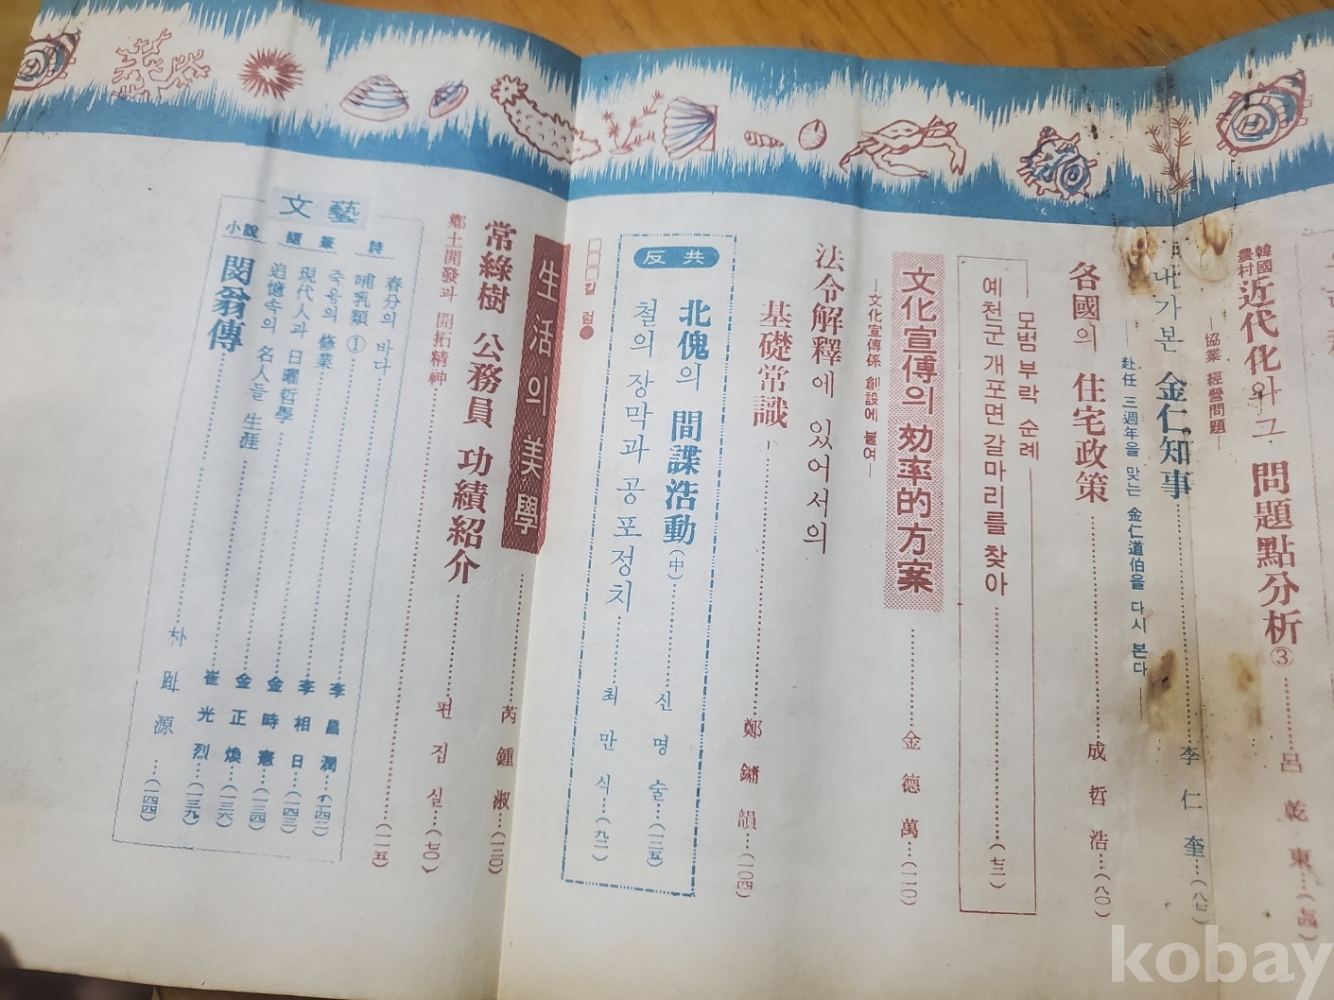 韓國
農村
近代化와 그 問題點分析③
—協業 經營問題—
呂乾東…(七四)
내가 본 金仁知事
—赴任 三週年을 맞는 金仁道伯을 다시 본다—
李仁奎…(八七)
各國의 住宅政策
成哲浩…(八〇)
모범부락 순례
예천군 개포면 갈마리를 찾아
(七二)
文化宣傳의 効率的方案
—文化宣傳係 創設에 붙여—
金德萬…(一一〇)
法令解釋에 있어서의
基礎常識
鄭鏞韻…(一〇四)
反共
北傀의 間諜浩動(中)
신명술…(一二五)
철의 장막과 공포정치
최만식…(九二)
□□□칼럼●
(一一五)
生活의 美學
芮鍾淑…(一三〇)
常綠樹 公務員 功績紹介
편집실…(七〇)
鄕土開發과 開拓精神
文藝
詩
春分의 바다
李昌潤…(一四二)
哺乳類①
李相日…(一四三)
隨筆
죽음의 修業
金時憲…(一三四)
現代人과 日曜哲學
金正煥…(一三六)
追憶속의 名人들 生涯
崔光烈…(一三九)
小說
閔翁傳
朴趾源…(一四四)
kobay